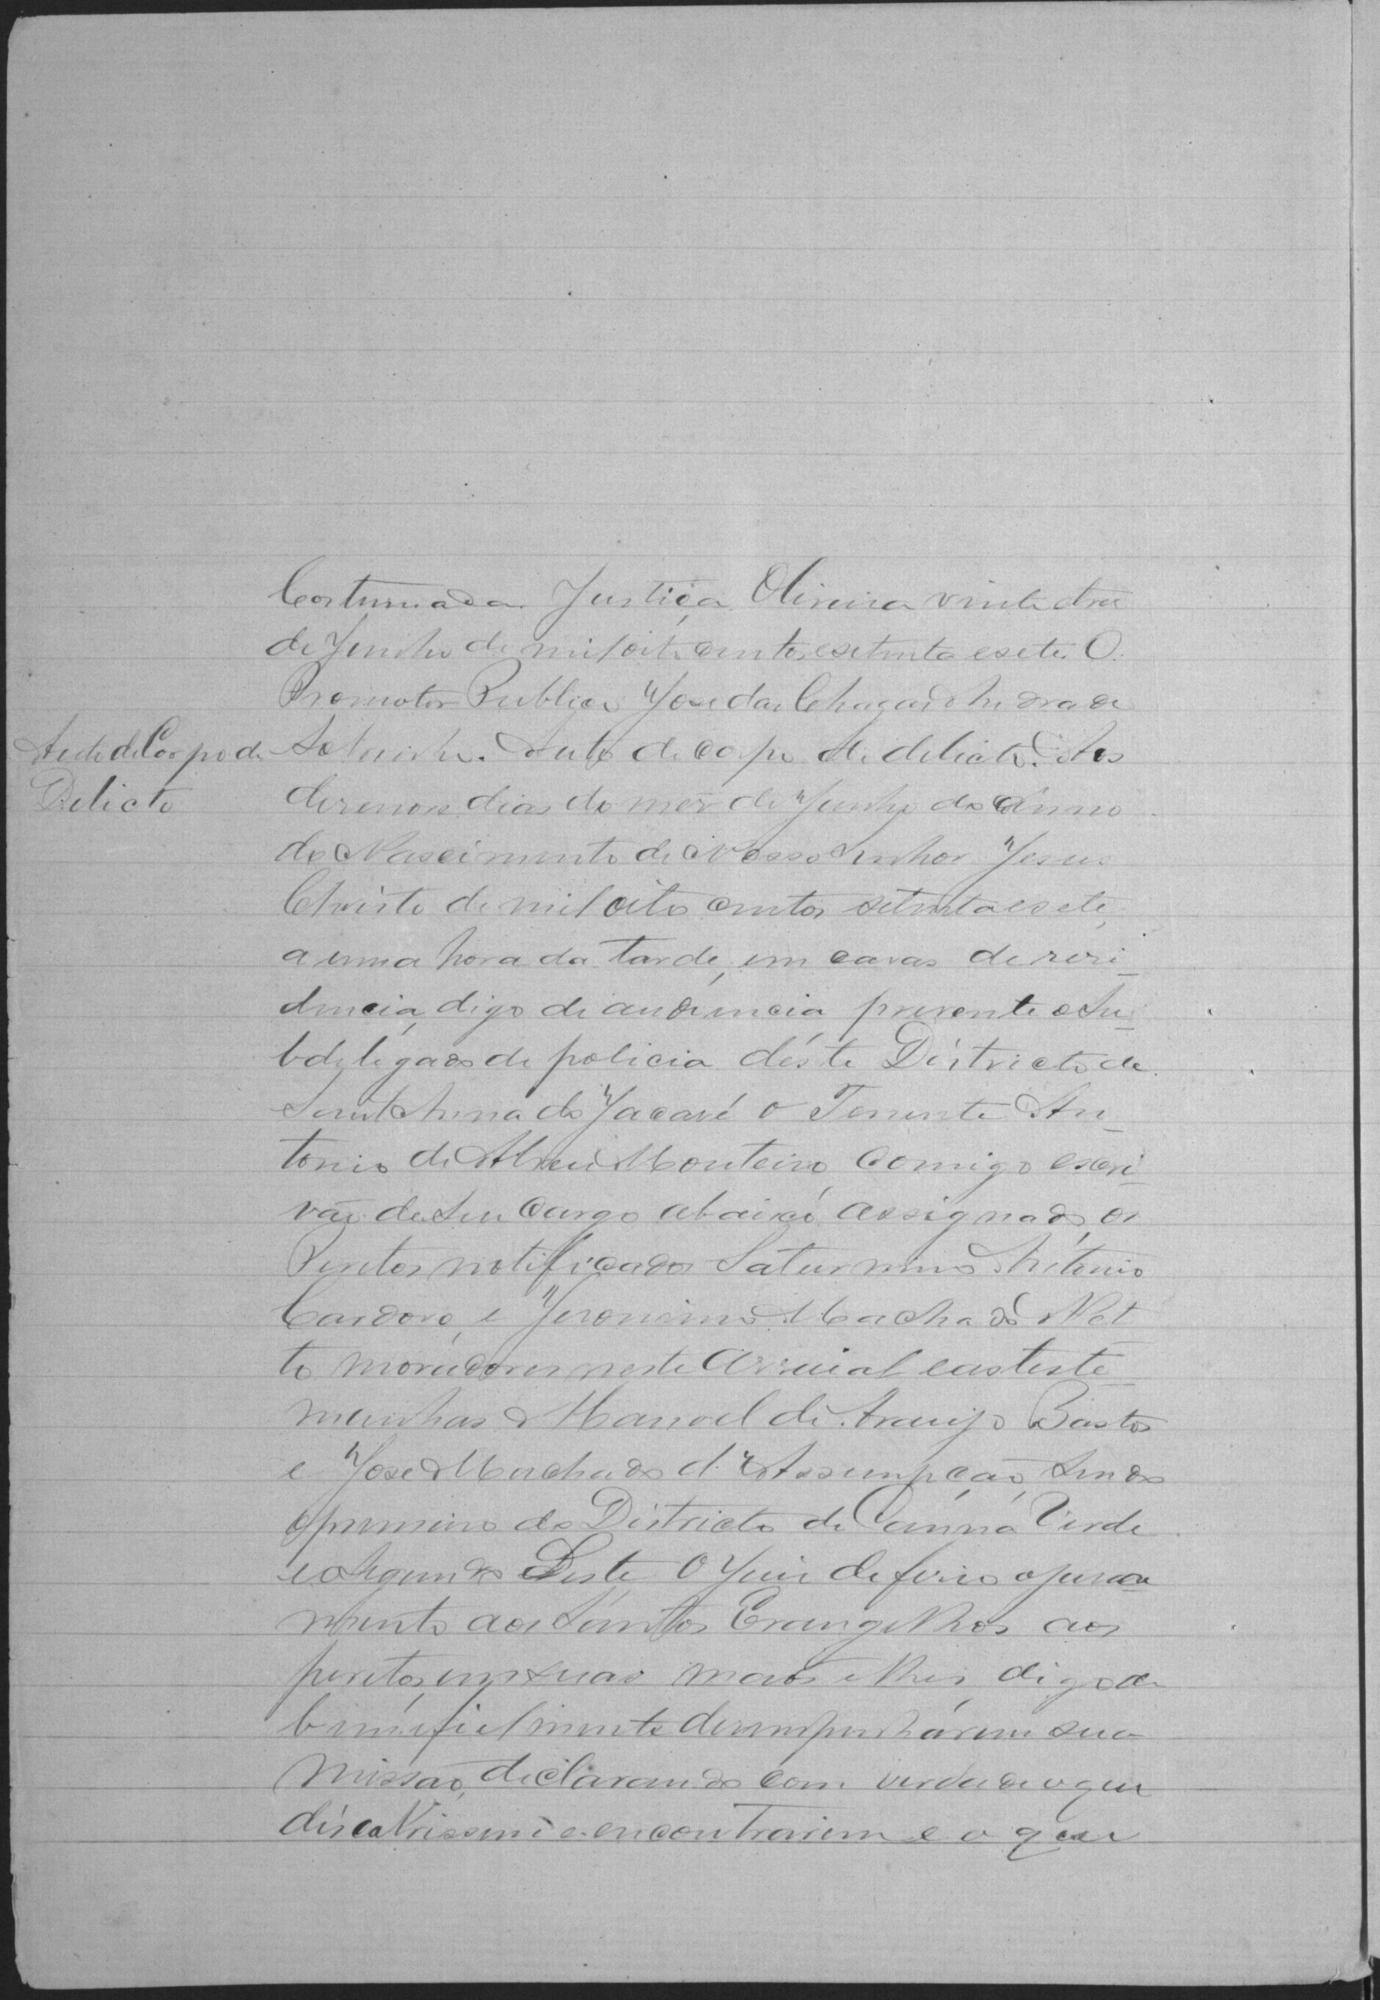 Costumada Justiça Oliveira vinte dous
de Junho de mil oito centos e setenta e sete. O
Promotor Publico José das Chagas Andrade
Sobrinho. Auto de corpo de delicto. Aos
Auto de Corpo de
Delicto
desenove dias do mez de Junho do Anno
do Nascimento de Nosso Senhor Jesus
Christo de mil oito centos setenta e sete,
a uma hora da tarde, em casas de resi-
dencia, digo de audiencia presente o Su-
bdelegado de policia déste Districto de
Sant'Anna do Jacaré o Tenente An-
tonio de Abreu Monteiro, comigo escri-
vão de seu cargo abaixo assignado, os
Peritos notificados Saturnino Antonio
Cardoso, e Jeronimo Machado Net-
to moradores neste Arraial e as teste-
munhas Manoel de Araujo Bastos
e José Machado d'Assumpção, sendo
o primeiro do Districto de Canna Verde
e o segundo Deste O Juiz deferio o jura
mento aos Santos Evangelhos aos
peritos, em suas mãos e lhes, digo de
bem e fielmente desempenhárem sua
missão, declarando com verdade o que
discobrissem e encontrarem e o que